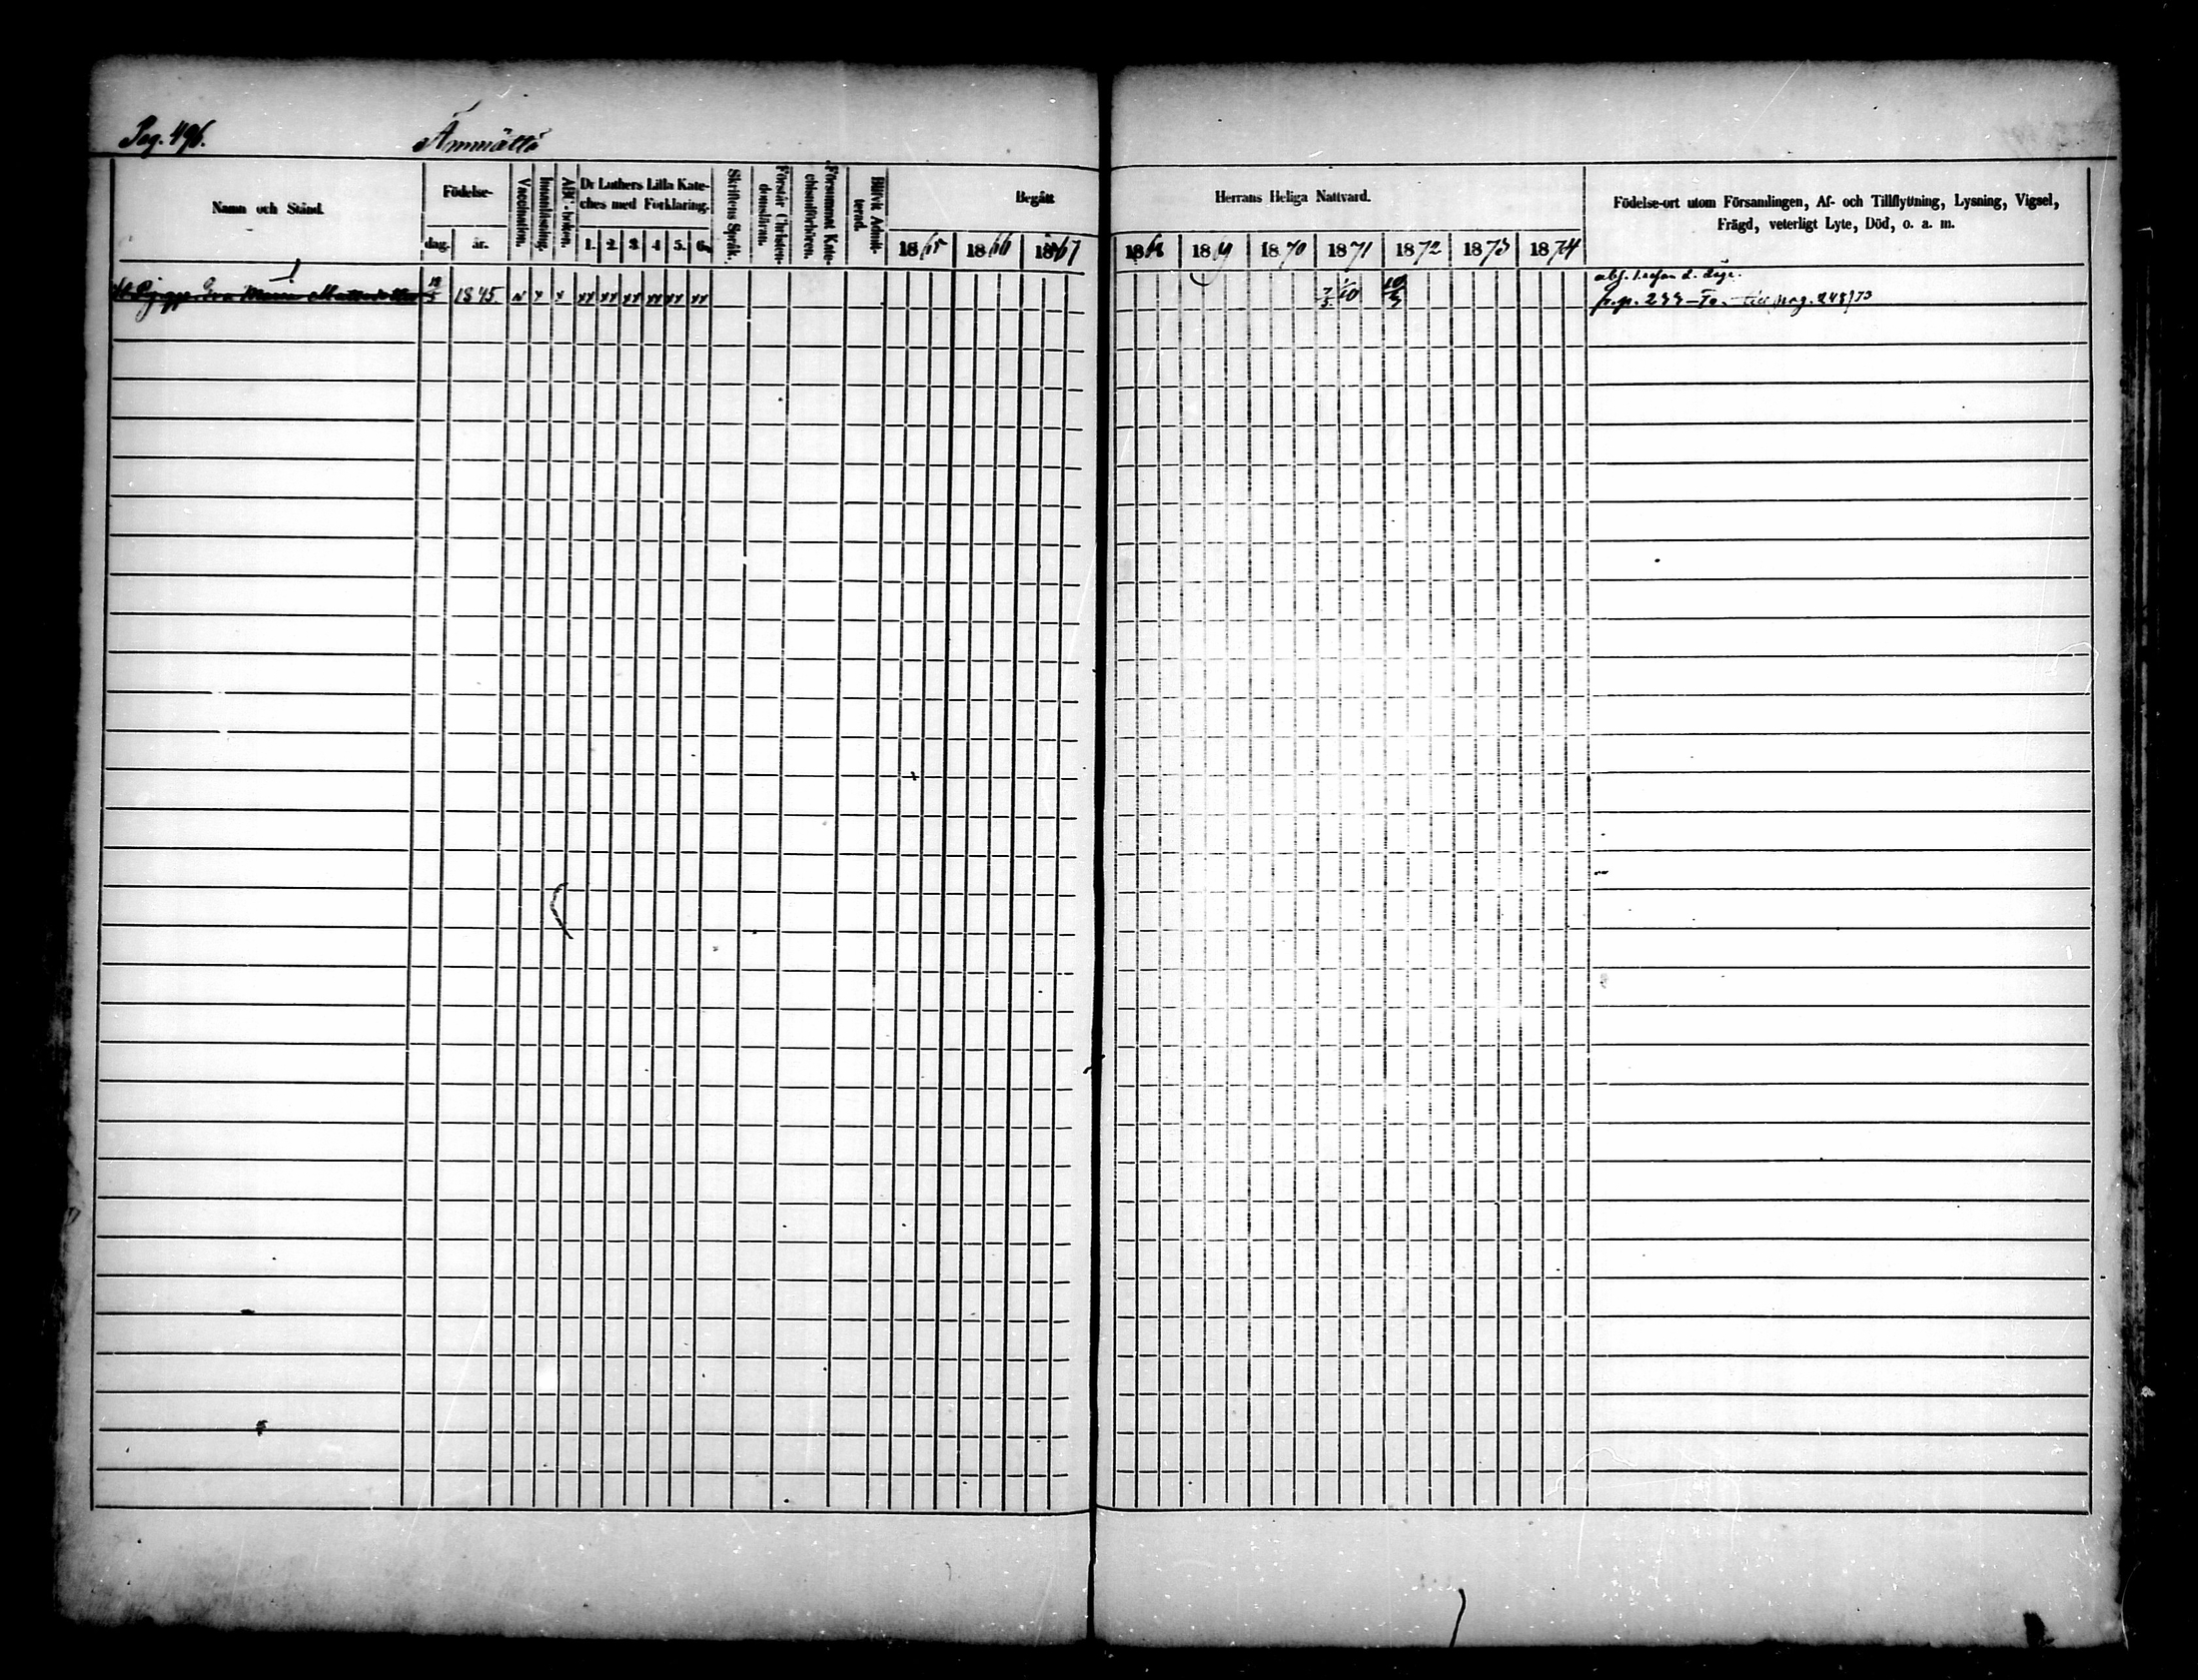 Pag. 496. Ämmättö
Namn och Stånd.
Födelse-
dag. år.
Vaccination.
Innanläsning.
ABC-boken.
Dr Luthers Lilla Kate-
ches med Förklaring.
1. 2. 3. 4. 5. 6.
Skriftens Språk.
Förstår Christen-
domsläran.
Försummat Kate-
chismiförhören.
Blifvit Admit-
terad.
Begått Herrans Heliga Nattvard.
1865 1866 1867 1868 1869 1870 1871 1872 1873 1874
Födelse-ort utom Församlingen, Af- och Tillflyttning, Lysning, Vigsel,
Frägd, veterligt Lyte, Död, o. a. m.
Eva 1845
fr. p. 244 till pag. 248/73